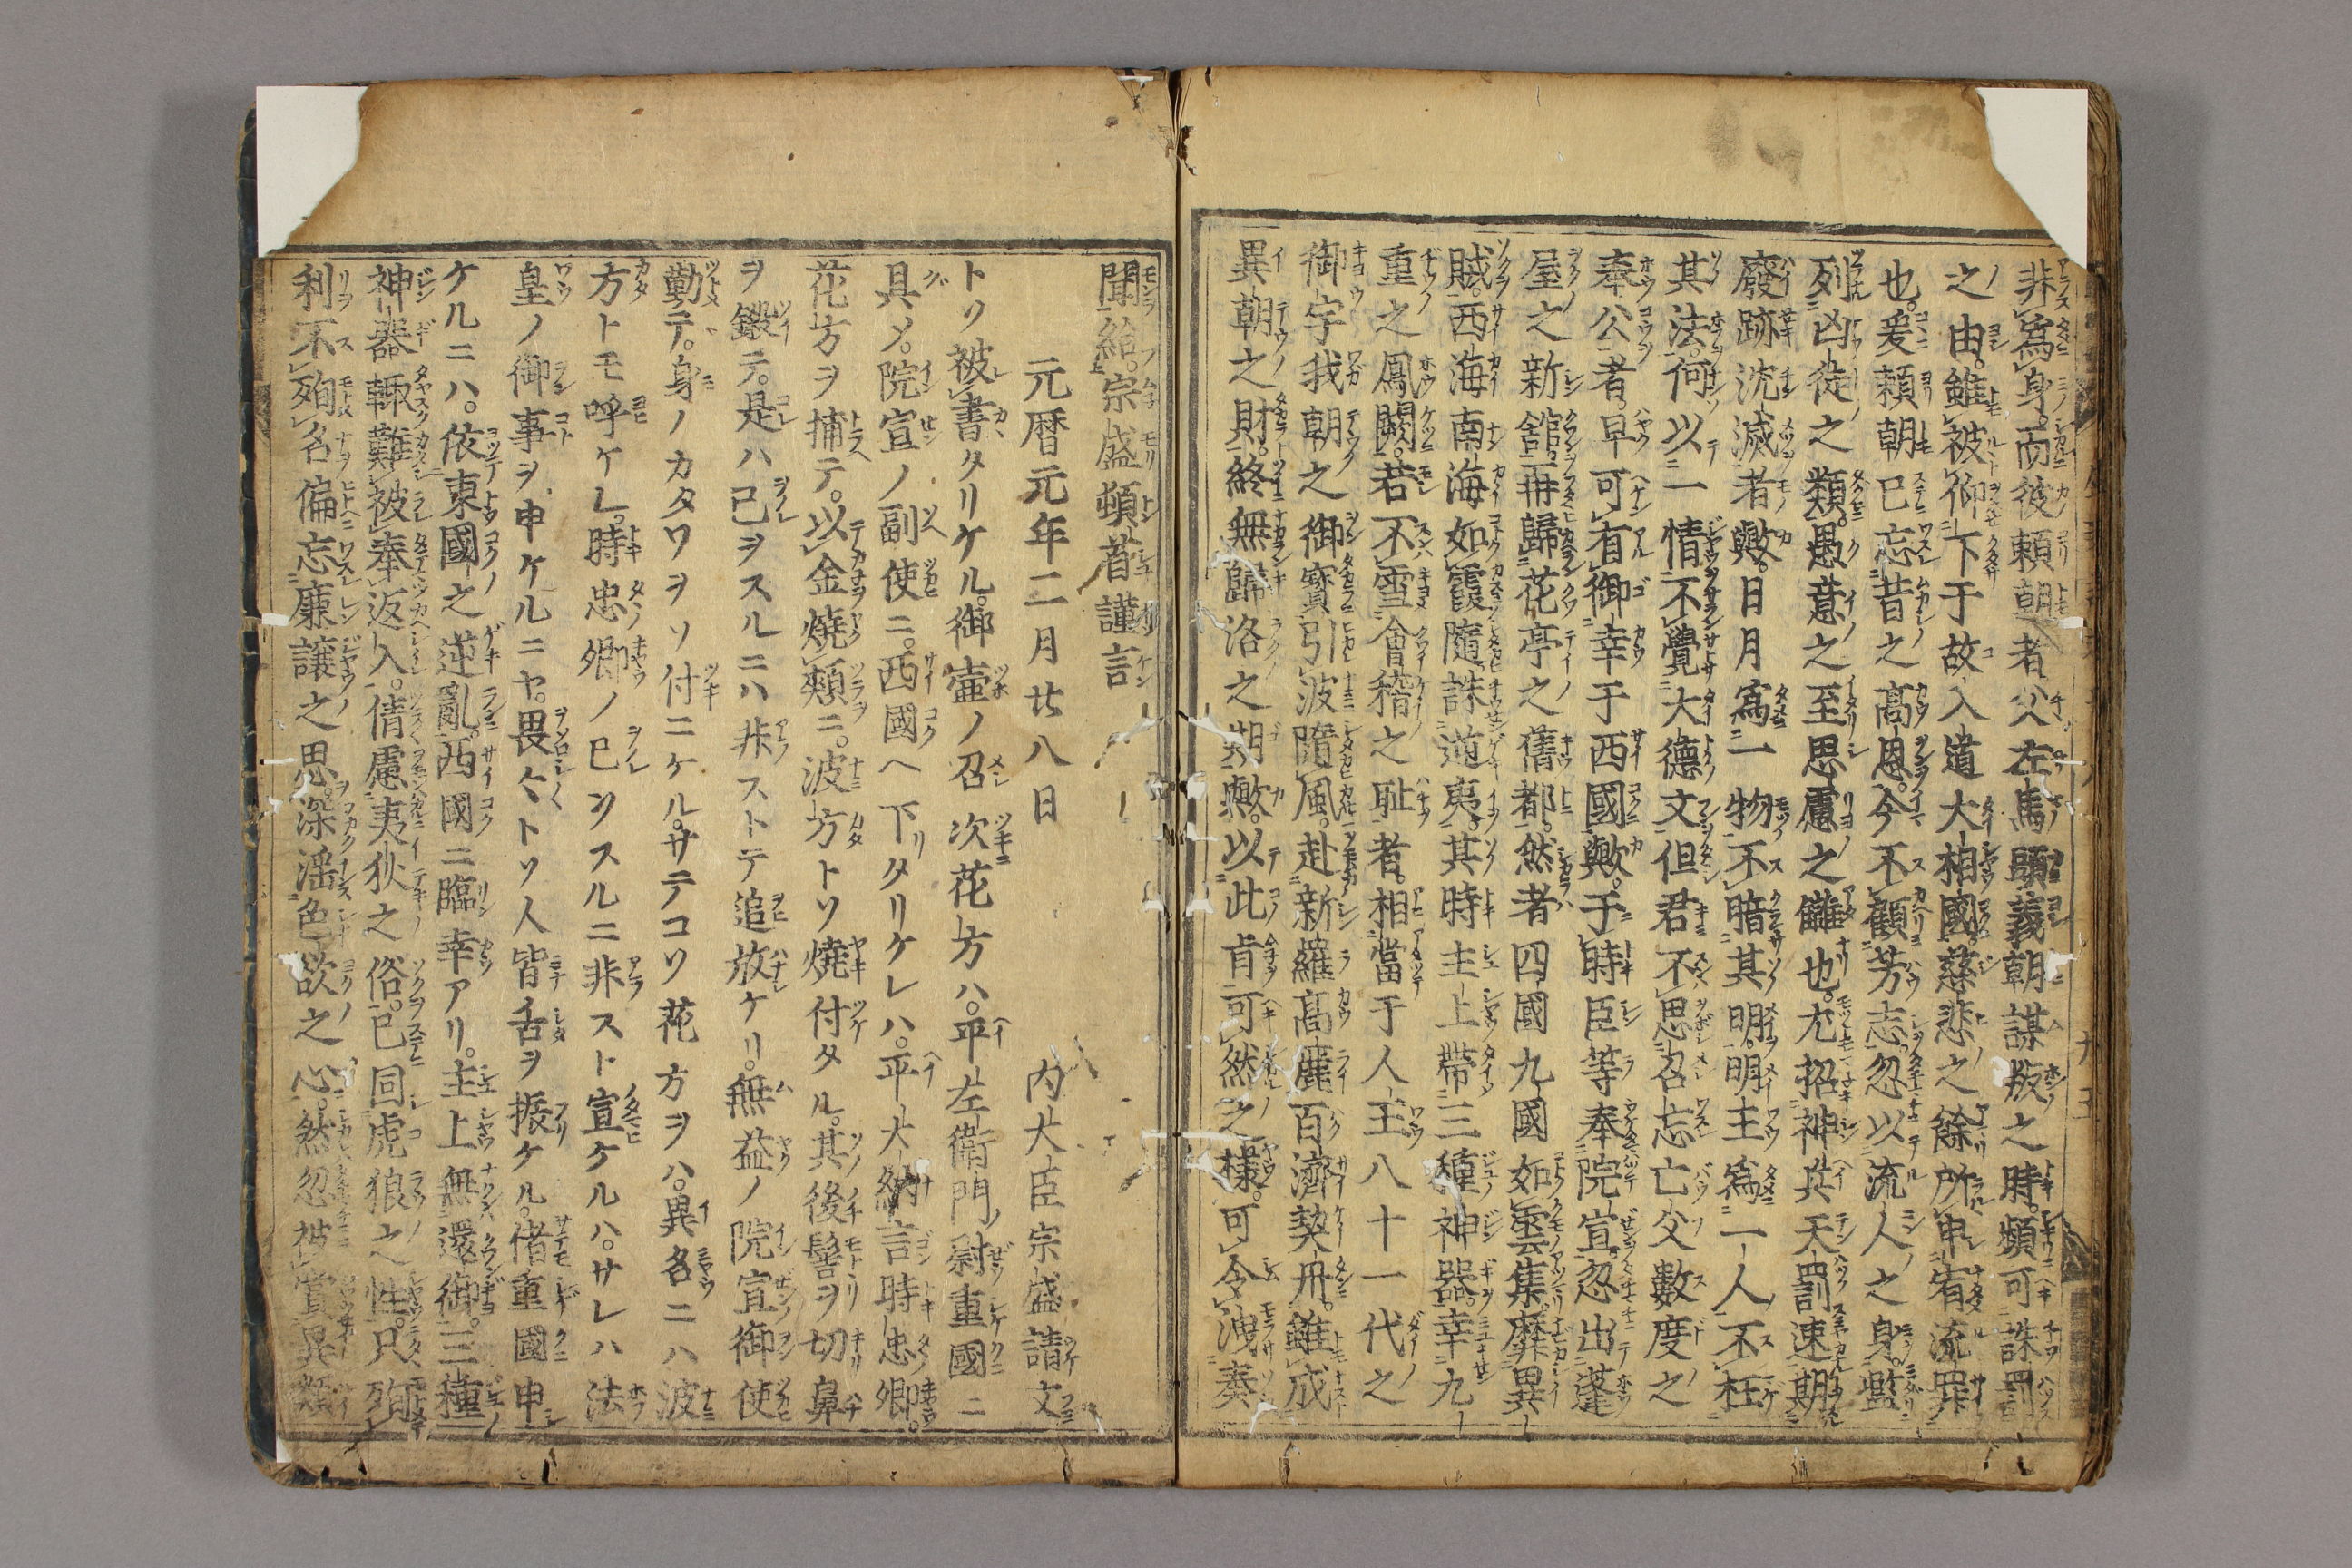 非爲身。而彼頼朝者父左馬頭義朝謀叛之時。頻可誅罰
之由。雖被仰下于故入道大相國。慈悲之餘所申宥流罪
也。爰頼朝已忘昔之高恩。今不顧芳志。忽以流人之身。濫
列凶徒之類。愚意之至思慮之讎也。尤招神兵天罰速期
廢跡沈滅者歟。日月爲一物不暗其明。明主爲一人不枉
其法。何以一情不覺大徳文但君不思召忘亡父數度之
奉公者。早可有御幸于西國歟。于時臣等奉院宣。忽出蓬
屋之新舘再歸花亭之舊都。然者四國九國如雲集靡異
賊。西海南海如霞隨誅逆夷。其時主上帶三種神器。幸九
重之鳳闕。若不雪會稽之恥者。相當于人王八十一代之
御宇我朝之御寳引波隨風。赴新羅高麗百濟契丹。雖成
異朝之財。終無歸洛之期歟。以此肯可然之樣。可令洩奏
聞給。宗盛頓首謹言
元暦元年二月廿八日
内大臣宗盛請文
トソ被書タリケル。御壷ノ召次花方ハ。平左衛門尉重國ニ
具〆。院宣ノ副使ニ。西國ヘ下タリケレハ。平大納言時忠卿。
花方ヲ捕テ。以金燒頬ニ。波方トソ燒付タル。其後髻ヲ切鼻
ヲ鍛テ。是ハ己ヲスルニハ非ストテ追放ケリ。無益ノ院宣御使
勤テ。身ノカタワヲソ付ニケル。サテコソ花方ヲハ。異名ニハ波
方トモ呼ケレ。時忠卿ノ已ンスルニ非スト宣ケルハ。サレハ法
皇ノ御事ヲ申ケルニヤ。畏々トソ人皆舌ヲ振ケル。偖重國申
ケルニハ。依東國之逆亂。西國ニ臨幸アリ。主上無還御。三種
神器輙難被奉返入。倩慮夷狄之俗。已同虎狼之性。只殉
利不殉名偏忘廉讓之思。深滛色欲之心。然忽被賞異類